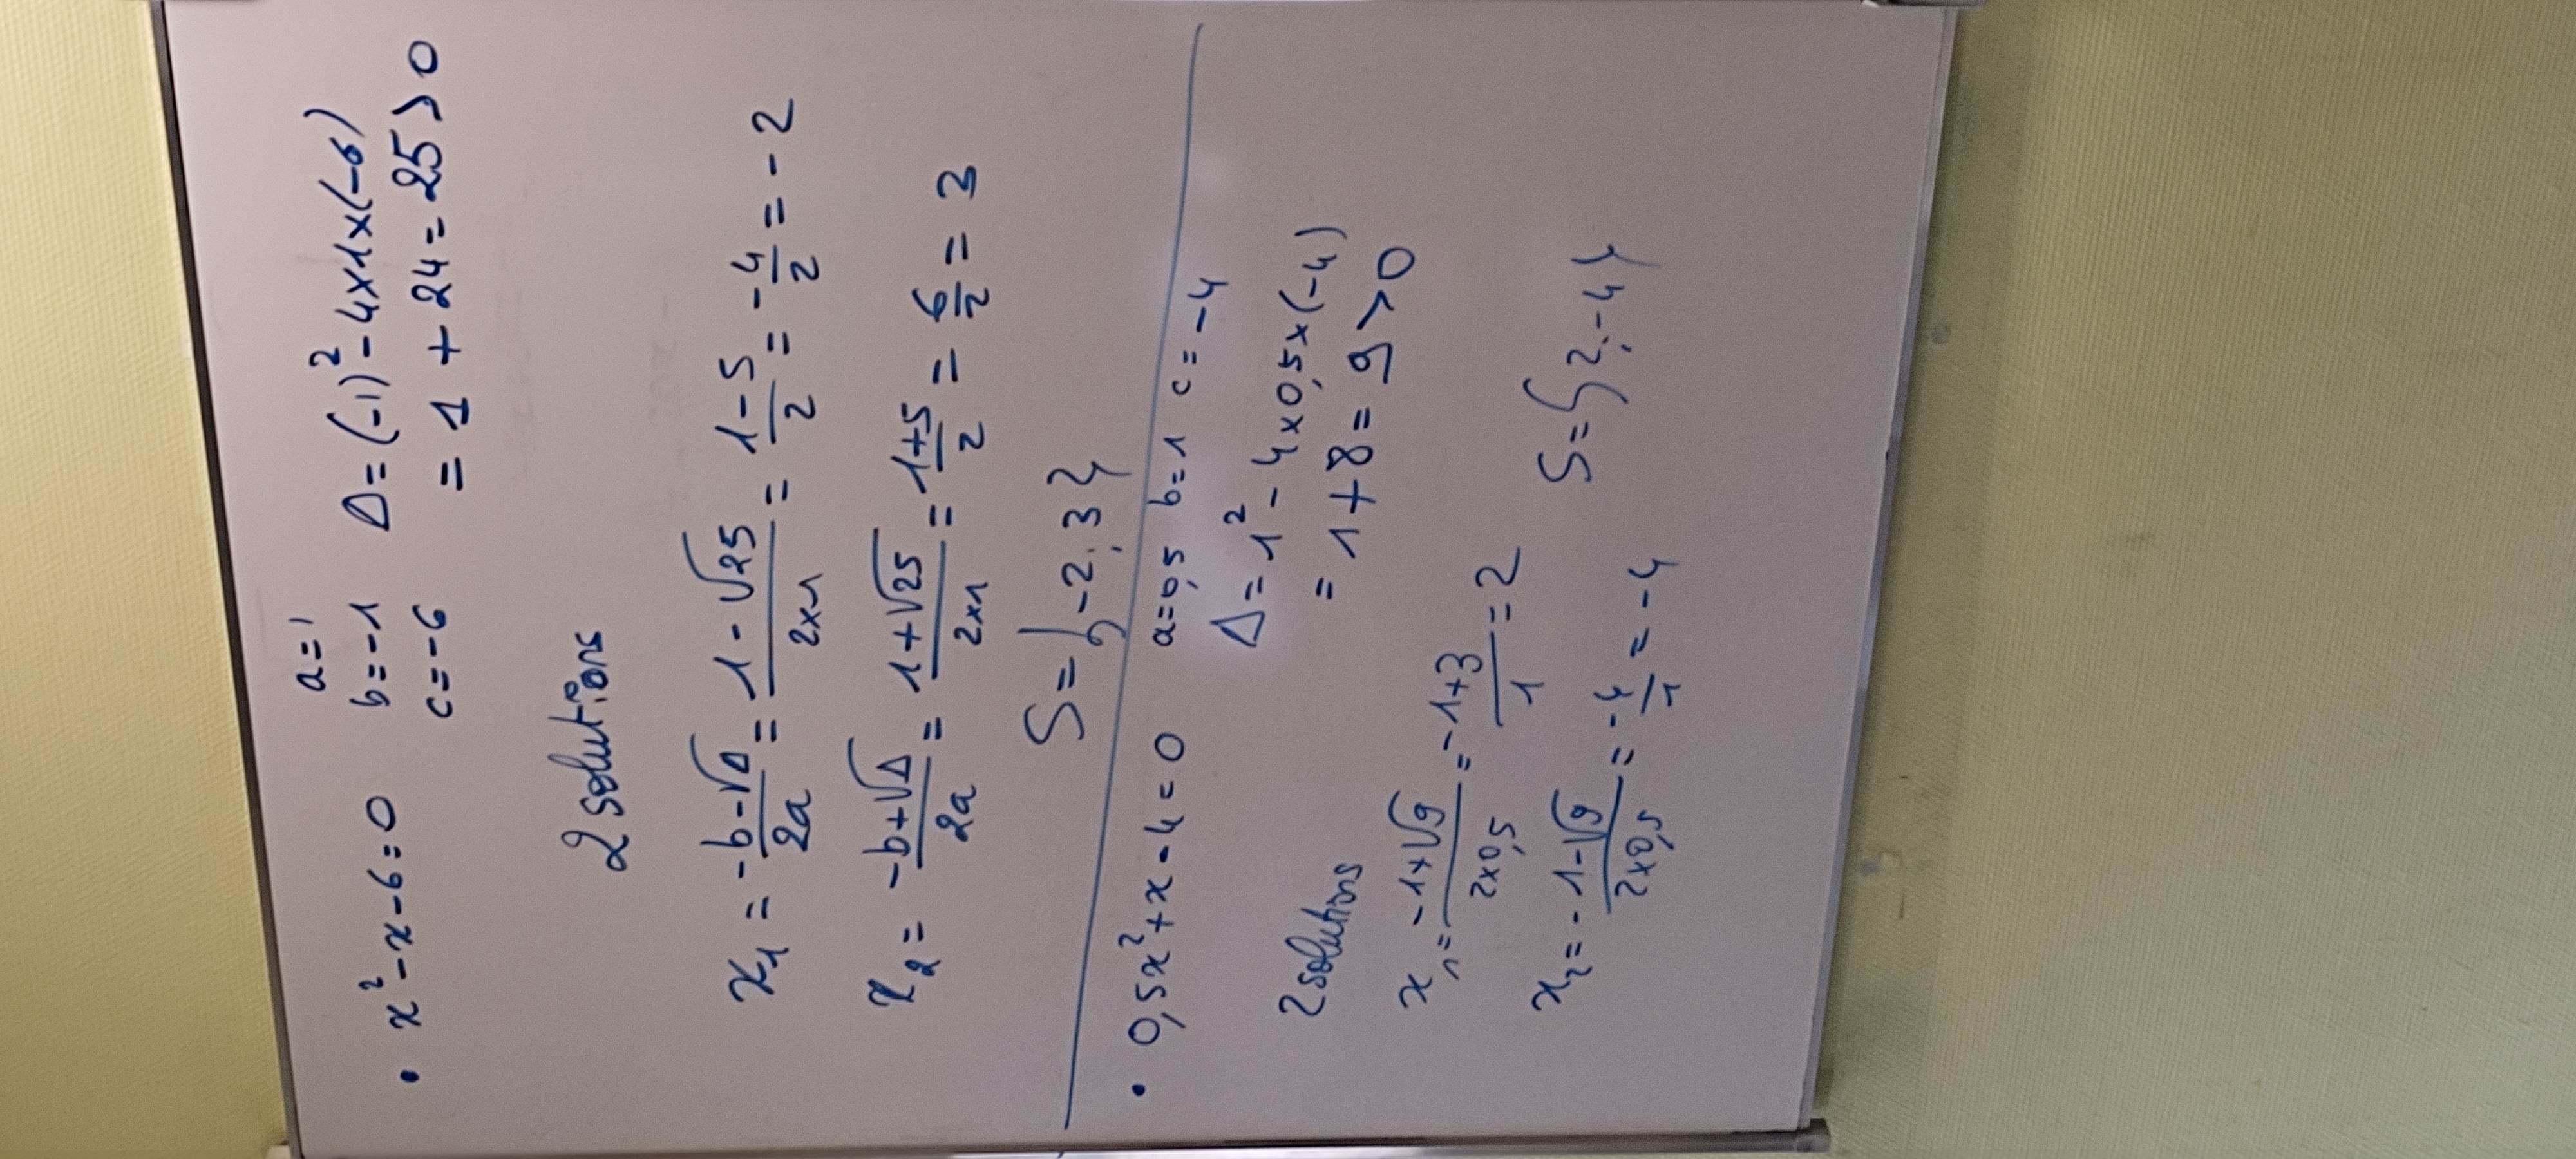 a = 1
• x² - x - 6 = 0    b = -1    Δ = (-1)² - 4×1×(-6)
c = -6    = 1 + 24 = 25 > 0
2 solutions
x₁ = (-b-√Δ)/2a = (1-√25)/(2×1) = (1-5)/2 = -4/2 = -2
x₂ = (-b+√Δ)/2a = (1+√25)/(2×1) = (1+5)/2 = 6/2 = 3
S = {-2; 3}
• 0,5x² + x - 4 = 0    a = 0,5    b = 1    c = -4
Δ = 1² - 4×0,5×(-4)
= 1 + 8 = 9 > 0
2 solutions
x₁ = (-1+√9)/(2×0,5) = (-1+3)/1 = 2
x₂ = (-1-√9)/(2×0,5) = -4/1 = -4
S = {2; -4}